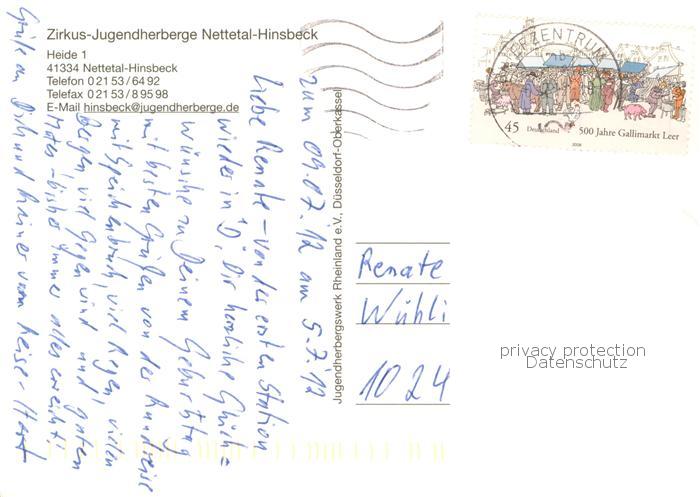 Zirkus-Jugendherberge Nettetal-Hinsbeck
Heide 1
41334 Nettetal-Hinsbeck
Telefon 0 21 53 / 64 92
Telefax 0 21 53 / 8 95 98
E-Mail hinsbeck@jugendherberge.de
zum 09.07.12 am 5.7.12
Liebe Renate - von der ersten Station
wieder in "D", Dir herzliche Glück=
wünsche zu Deinem Geburtstag
mit besten Grüßen von der Rundreise
mit Speichenbruch, viel Regen, vielen
Bergen, viel Gegenwind und guten
bisher immer alles erreicht!
Grüße an Dich und Reiner vom Reise-
Jugendherbergswerk Rheinland e.V., Düsseldorf-Oberkassel
ERZENTRUM
45 Deutschland 500 Jahre Gallimarkt Leer
2008
Renate
Wühli
1024
privacy protection
Datenschutz